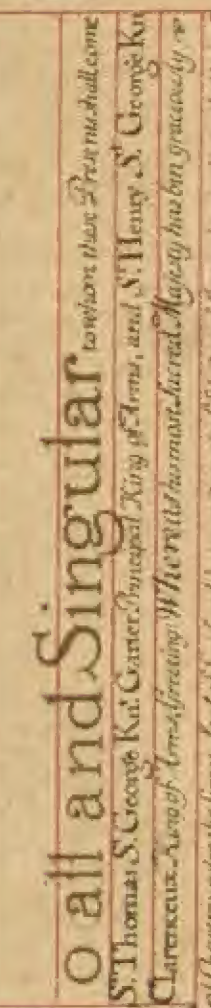 o all and Singular to whom these Presents shall come
Sr. Thomas St. George Knt. Garter Principal King of Arms, and Sr. Henry St. George Kn
Clarenceux King of Arms, Greeting Whereas his most Sacred Majesty has bin graciously